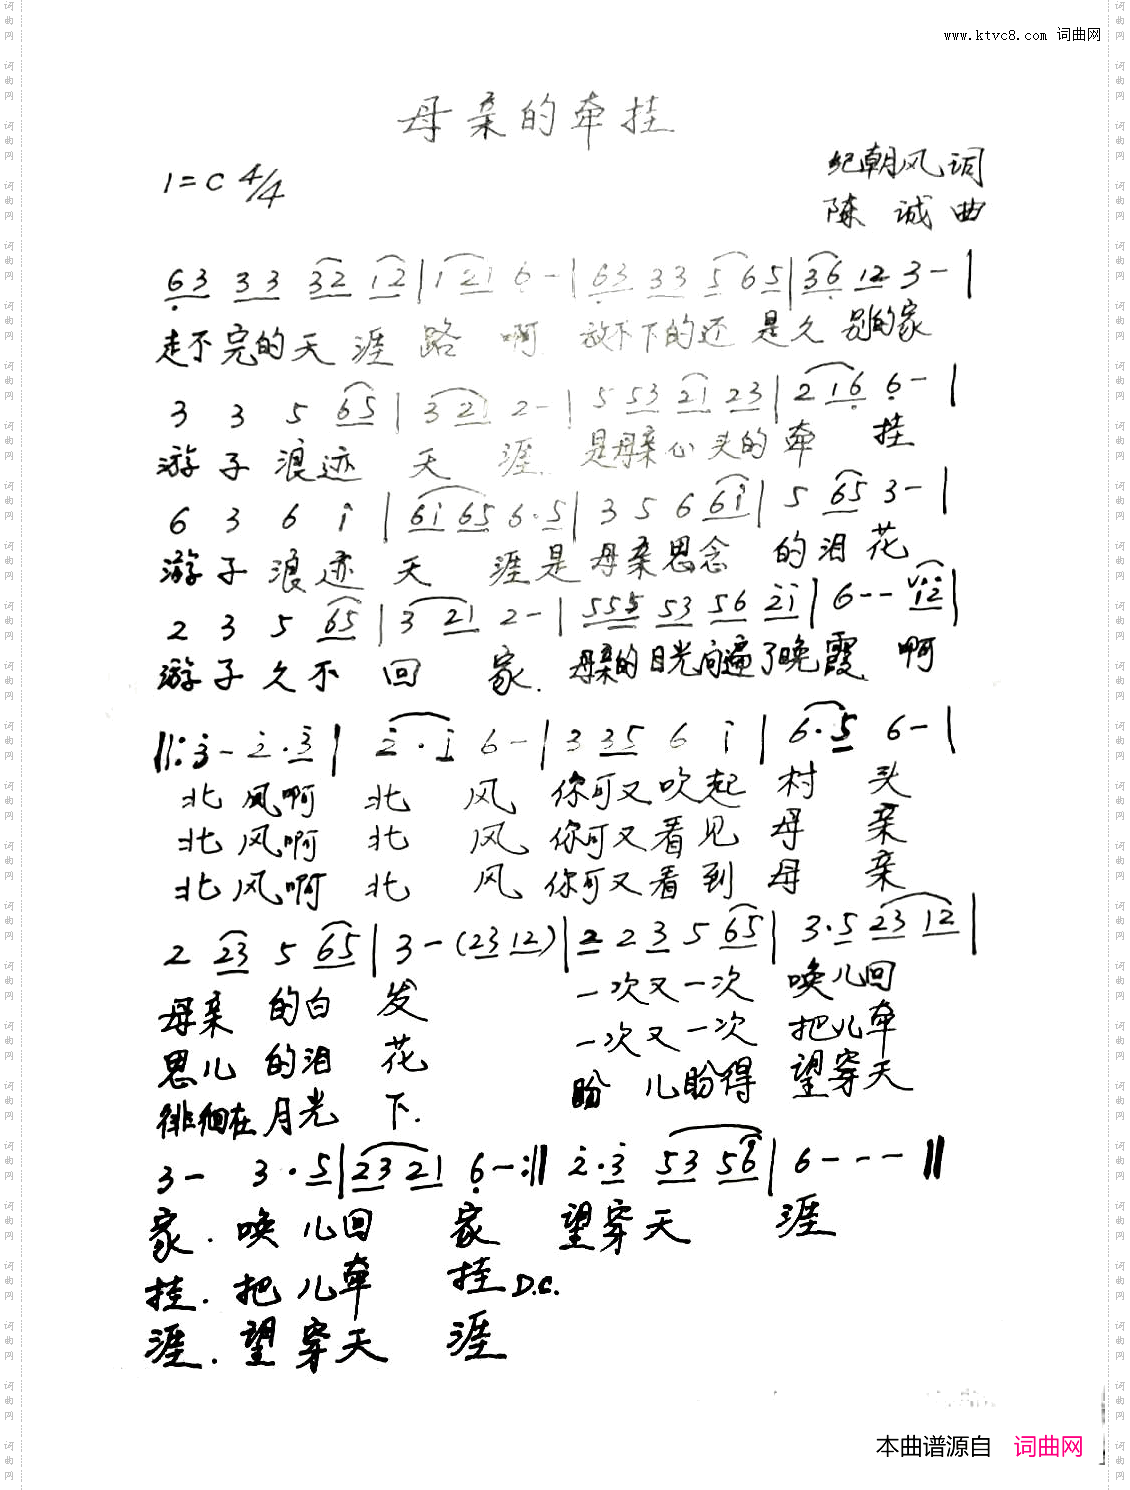 www.ktvc8.com 词曲网
母亲的牵挂
1=C 4/4
纪朝风词
陈诚曲
63 33 32 12 | 1 21 6 - | 63 33 5 65 | 36 12 3 - |
走不完的天涯路啊 放不下的还是久别的家
3 3 5 65 | 3 21 2 - | 5 53 21 23 | 2 16 6 - |
游子浪迹天涯. 是母亲心头的牵挂
6 3 6 i | 6i 65 6·5 | 3 5 6 6i | 5 65 3 - |
游子浪迹天涯是母亲思念的泪花
2 3 5 65 | 3 21 2 - | 555 53 56 2i | 6 - - 12 |
游子久不回家. 母亲的目光问遍了晚霞 啊
||: 3 - 2·3 | 2·i 6 - | 3 35 6 i | 6·5 6 - |
北风啊北风你可又吹起村头
北风啊北风你可又看见母亲
北风啊北风你可又看到母亲
2 23 5 65 | 3 - (23 12) | 2 2 3 5 65 | 3·5 23 12 |
母亲的白发 一次又一次 唤儿回
思儿的泪花 一次又一次 把儿牵
徘徊在月光下. 盼儿盼得 望穿天
3 - 3·5 | 23 21 6 - :|| 2·3 53 56 | 6 - - - ||
家. 唤儿回家 望穿天涯
挂. 把儿牵挂 D.C.
涯. 望穿天涯
本曲谱源自 词曲网